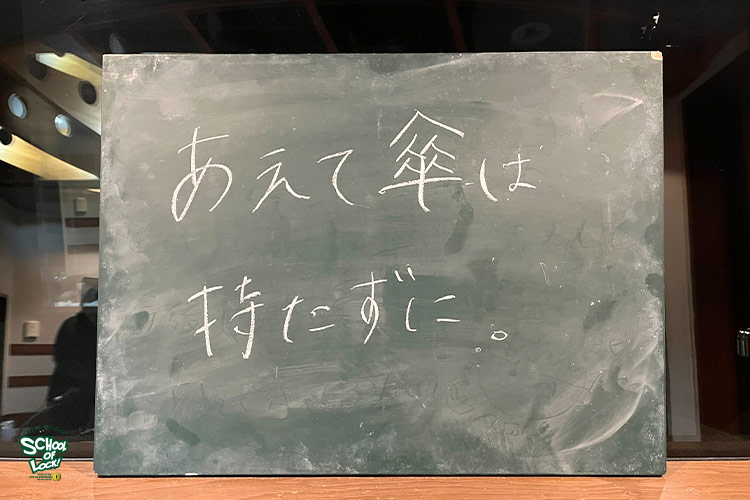 あえて傘は
持たずに。
SCHOOL
OF
LOCK!